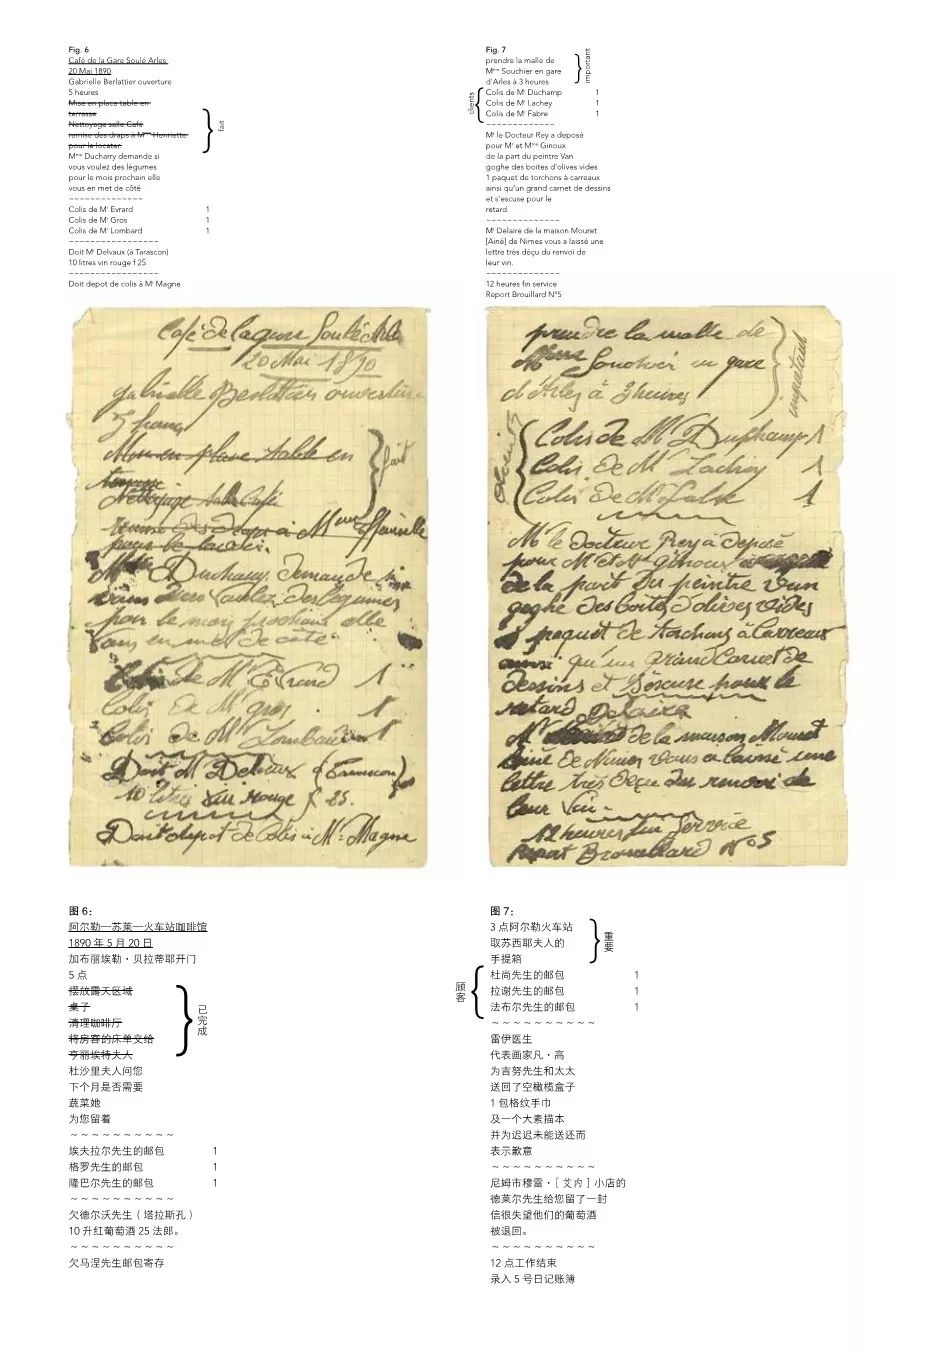 Fig. 6
Café de la Gare Soulé Arles
20 Mai 1890
Gabrielle Berlattier ouverture
5 heures
Mise en place table en
terrasse
Nettoyage salle Café
remise des draps à Mᵐᵉ Henriette
pour le locater.
fait
Mᵐᵉ Ducharry demande si
vous voulez des légumes
pour le mois prochain elle
vous en met de côté
~~~~~~~~~~~~~~
Colis de Mʳ Evrard 1
Colis de Mʳ Gros 1
Colis de Mʳ Lombard 1
~~~~~~~~~~~~~~~~~
Doit Mʳ Delvaux (à Tarascon)
10 litres vin rouge f 25.
~~~~~~~~~~~~~~~~~
Doit depot de colis à Mʳ Magne
Fig. 7
prendre la malle de
Mᵐᵉ Souchier en gare
d'Arles à 3 heures
important
clients
Colis de Mʳ Duchamp 1
Colis de Mʳ Lachey 1
Colis de Mʳ Fabre 1
~~~~~~~~~~~~~
Mʳ le Docteur Rey a deposé
pour Mʳ et Mᵐᵉ Ginoux
de la part du peintre Van
goghe des boites d'olives vides
1 paquet de torchons à carreaux
ainsi qu'un grand carnet de dessins
et s'escuse pour le
retard
~~~~~~~~~~~~~~
Mʳ Delaire de la maison Mouret
[Ainé] de Nimes vous a laissé une
lettre très déçu du renvoi de
leur vin.
~~~~~~~~~~~~~~
12 heures fin service
Report Brouillard N°5
Café de la gare Soulé Arles
20 Mai 1890
gabrielle Berlattier ouverture
5 heures
Mise en place table en
terrasse
Nettoyage salle Café
remise des draps à Mᵐᵉ Henriette
pour le locater.
fait
Mᵐᵉ Ducharry demande si
vous voulez des légumes
pour le mois prochain elle
vous en met de côté
Colis de Mʳ Evrard 1
Colis de Mʳ gros 1
Colis de Mʳ Lombard 1
Doit Mʳ Delvaux (à Tarascon)
10 litres vin rouge f 25.
Doit depot de colis à Mʳ Magne
prendre la malle de
Mᵐᵉ Souchier en gare
d'Arles à 3 heures
important
clients
Colis de Mʳ Duchamp 1
Colis de Mʳ Lachey 1
Colis de Mʳ Fabre 1
Mʳ le docteur Rey a deposé
pour Mʳ et Mᵐᵉ Ginoux
de la part du peintre Van
goghe des boites d'olives vides
1 paquet de torchons à carreaux
ainsi qu'un grand carnet de
dessins et s'escuse pour le
retard Delaire
Mʳ de la maison Mouret
Ainé de Nimes vous a laissé une
lettre très déçu du renvoi de
leur vin.
12 heures fin service
Report Brouillard N°5
图 6：
阿尔勒—苏莱—火车站咖啡馆
1890 年 5 月 20 日
加布丽埃勒·贝拉蒂耶开门
5 点
摆放露天区域
桌子
清理咖啡厅
将房客的床单交给
亨丽埃特夫人
已完成
杜沙里夫人问您
下个月是否需要
蔬菜她
为您留着
～～～～～～～～～～
埃夫拉尔先生的邮包 1
格罗先生的邮包 1
隆巴尔先生的邮包 1
～～～～～～～～～～
欠德尔沃先生（塔拉斯孔）
10 升红葡萄酒 25 法郎。
～～～～～～～～～～
欠马涅先生邮包寄存
图 7：
3 点阿尔勒火车站
取苏西耶夫人的
手提箱
重要
顾客
杜尚先生的邮包 1
拉谢先生的邮包 1
法布尔先生的邮包 1
～～～～～～～～～～
雷伊医生
代表画家凡·高
为吉努先生和太太
送回了空橄榄盒子
1 包格纹手巾
及一个大素描本
并为迟迟未能送还而
表示歉意
～～～～～～～～～～
尼姆市穆雷·［艾内］小店的
德莱尔先生给您留了一封
信很失望他们的葡萄酒
被退回。
～～～～～～～～～～
12 点工作结束
录入 5 号日记账簿